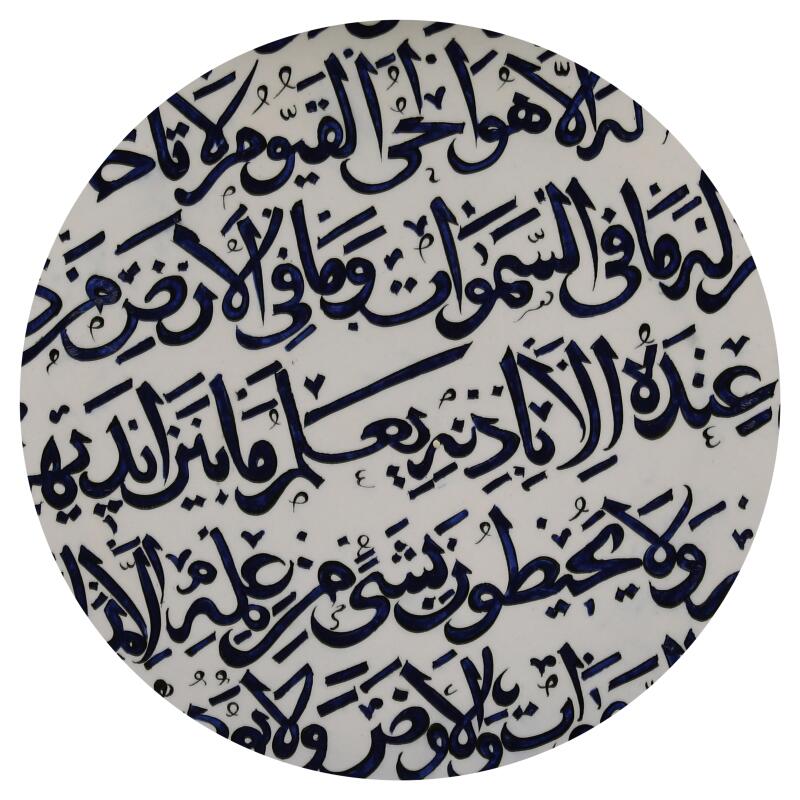 له إلا هو الحي القيوم لا تاخ
له ما في السموات وما في الأرض من ذ
عنده إلا باذنه يعلم ما بين ايديه
ولا يحيطون بشيء من علمه إلا بما
ات والأرض ولا يؤ